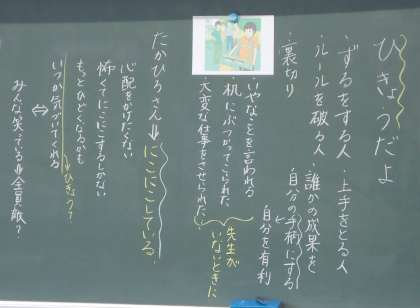 ひきょうだよ
・ずるをする人
・上手をとる人
・ルールを破る人
・誰かの成果を
自分の手柄にする
・裏切り
自分を有利
・いやなことを言われる
・机にぶつかってこられた
・大変な仕事をさせられた
先生が
いないときに
たかひろさん⇓にこにこしている
心配をかけたくない
怖くてにこにこするしかない
もっとひどくなるかも
いつか気づいてくれる
→ひきょう?
⇔
みんな笑っている⇓全員敵?